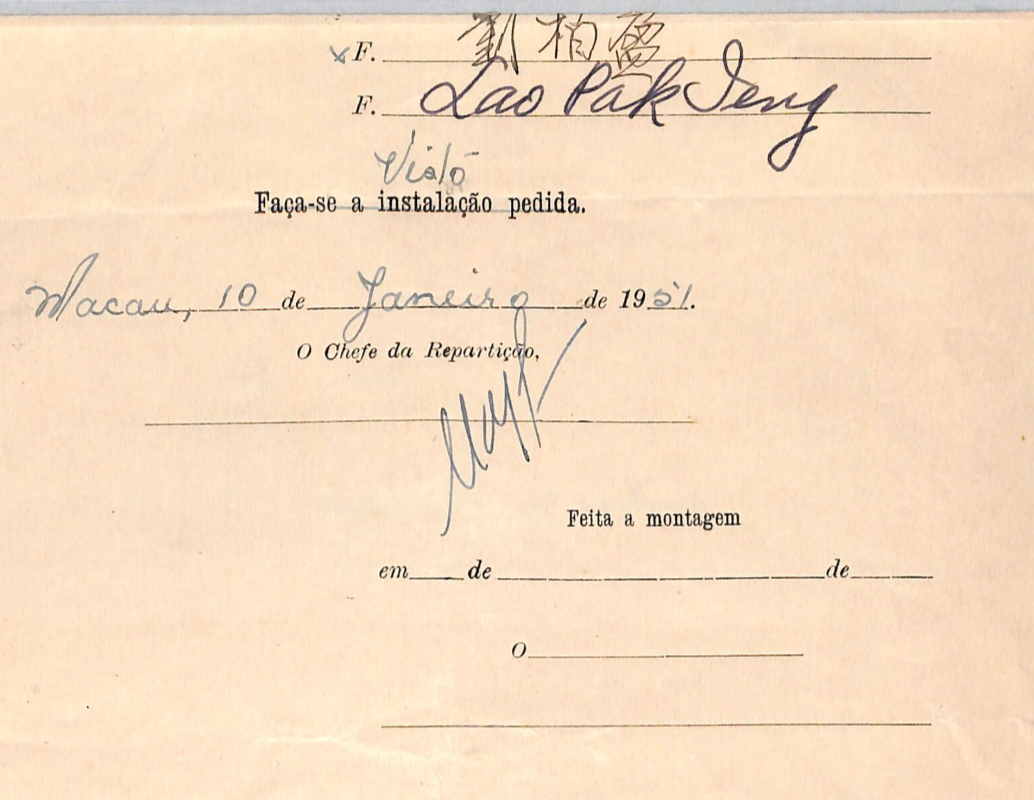 x F. 劉柏盈
F. Lao Pak Ieng
Visto
Faça-se a instalação pedida.
Macau, 10 de Janeiro de 1951.
O Chefe da Repartição,
Feita a montagem
em de de
O